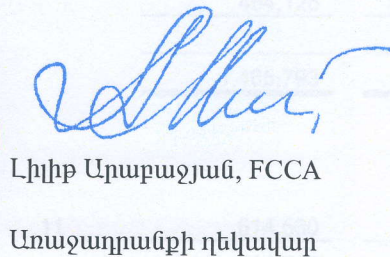 Լիլիթ Արաբաջյան, FCCA
Առաջադրանքի ղեկավար